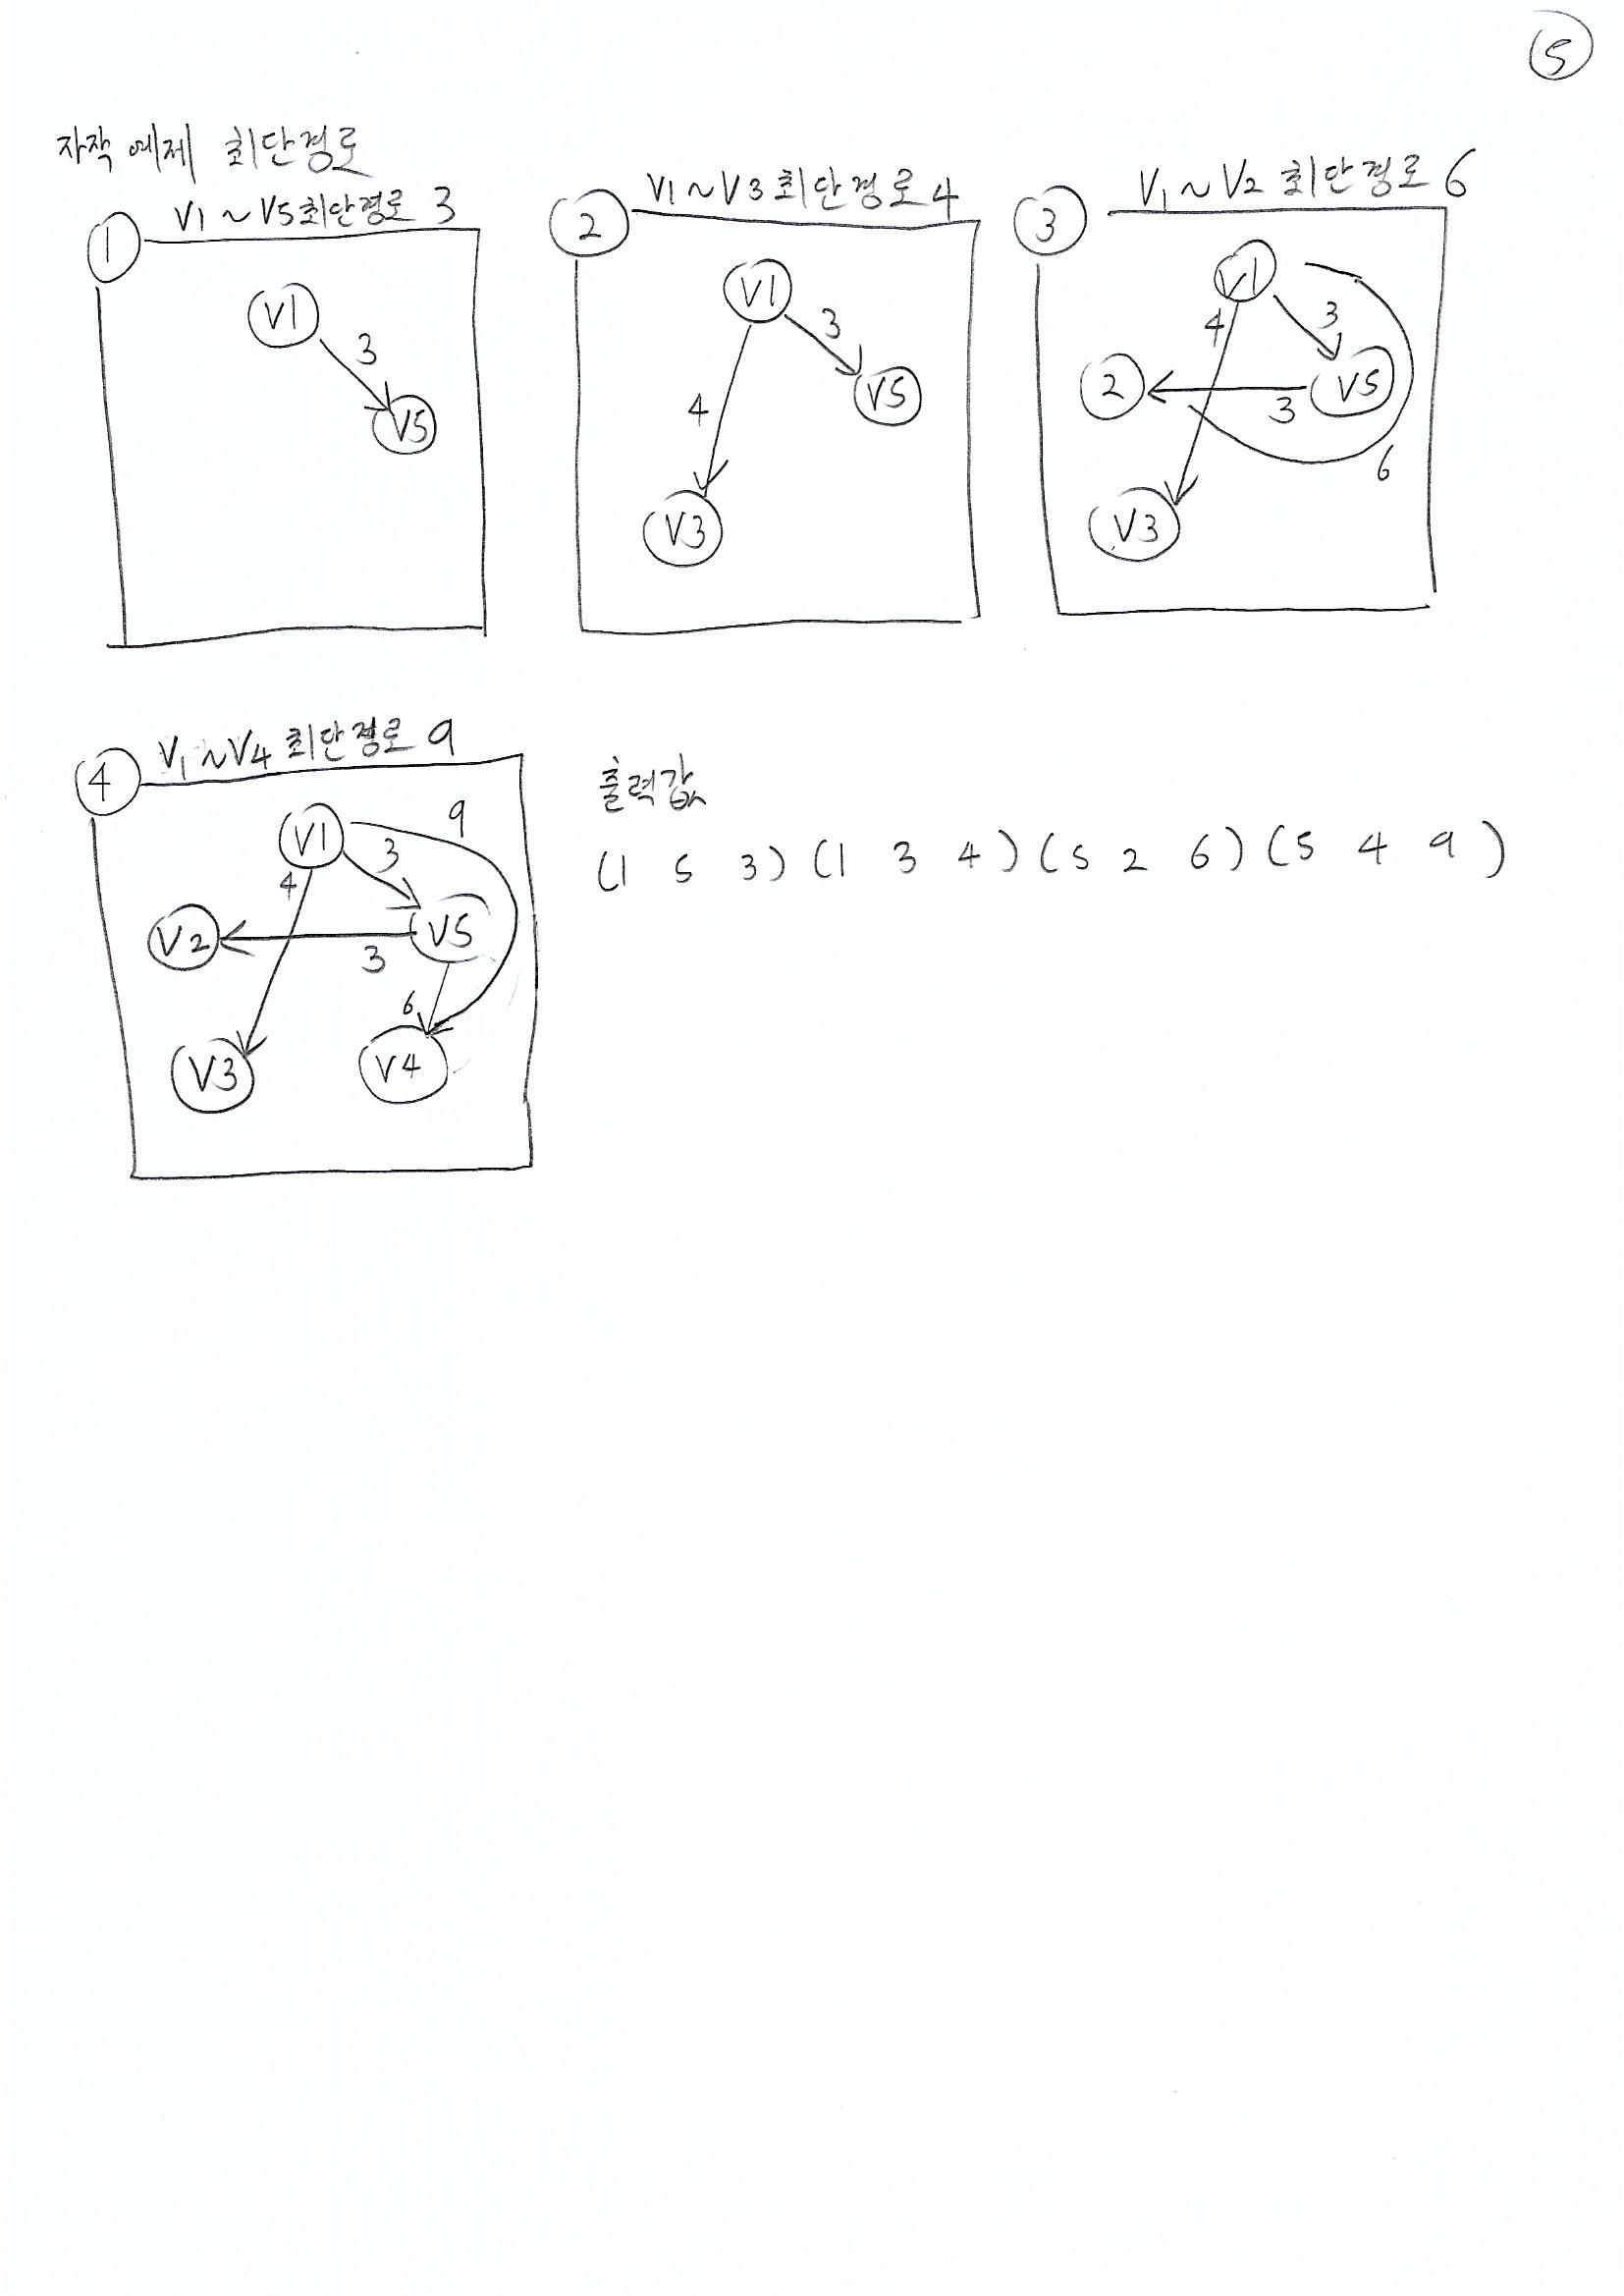 5
자작 예제 최단경로
1 V1 ~ V5 최단경로 3
V1
3
V5
2 V1 ~ V3 최단경로 4
V1
3
V5
4
V3
3 V1 ~ V2 최단경로 6
V1
4
3
2
V5
3
6
V3
4 V1 ~ V4 최단경로 9
V1
9
3
4
V2
V5
3
6
V3
V4
출력값
(1 5 3) (1 3 4) (5 2 6) (5 4 9)